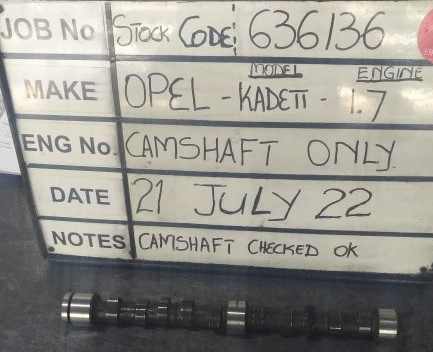 JOB No STOCK CODE: 636136
MODEL ENGINE
MAKE OPEL - KADETT - 1.7
ENG No. CAMSHAFT ONLY
DATE 21 JULY 22
NOTES CAMSHAFT CHECKED OK